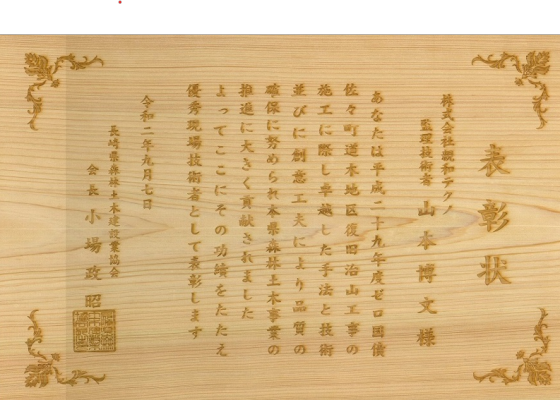 表彰状
株式会社親和テクノ
監理技術者 山本博文様
あなたは平成二十九年度ゼロ国債
佐々町道木地区復旧治山工事の
施工に際し卓越した手法と技術
並びに創意工夫により品質の
確保に努められ本県森林土木事業の
推進に大きく貢献されました
よってここにその功績をたたえ
優秀現場技術者として表彰します
令和二年九月七日
長崎県森林土木建設業協会
会長 小場政昭